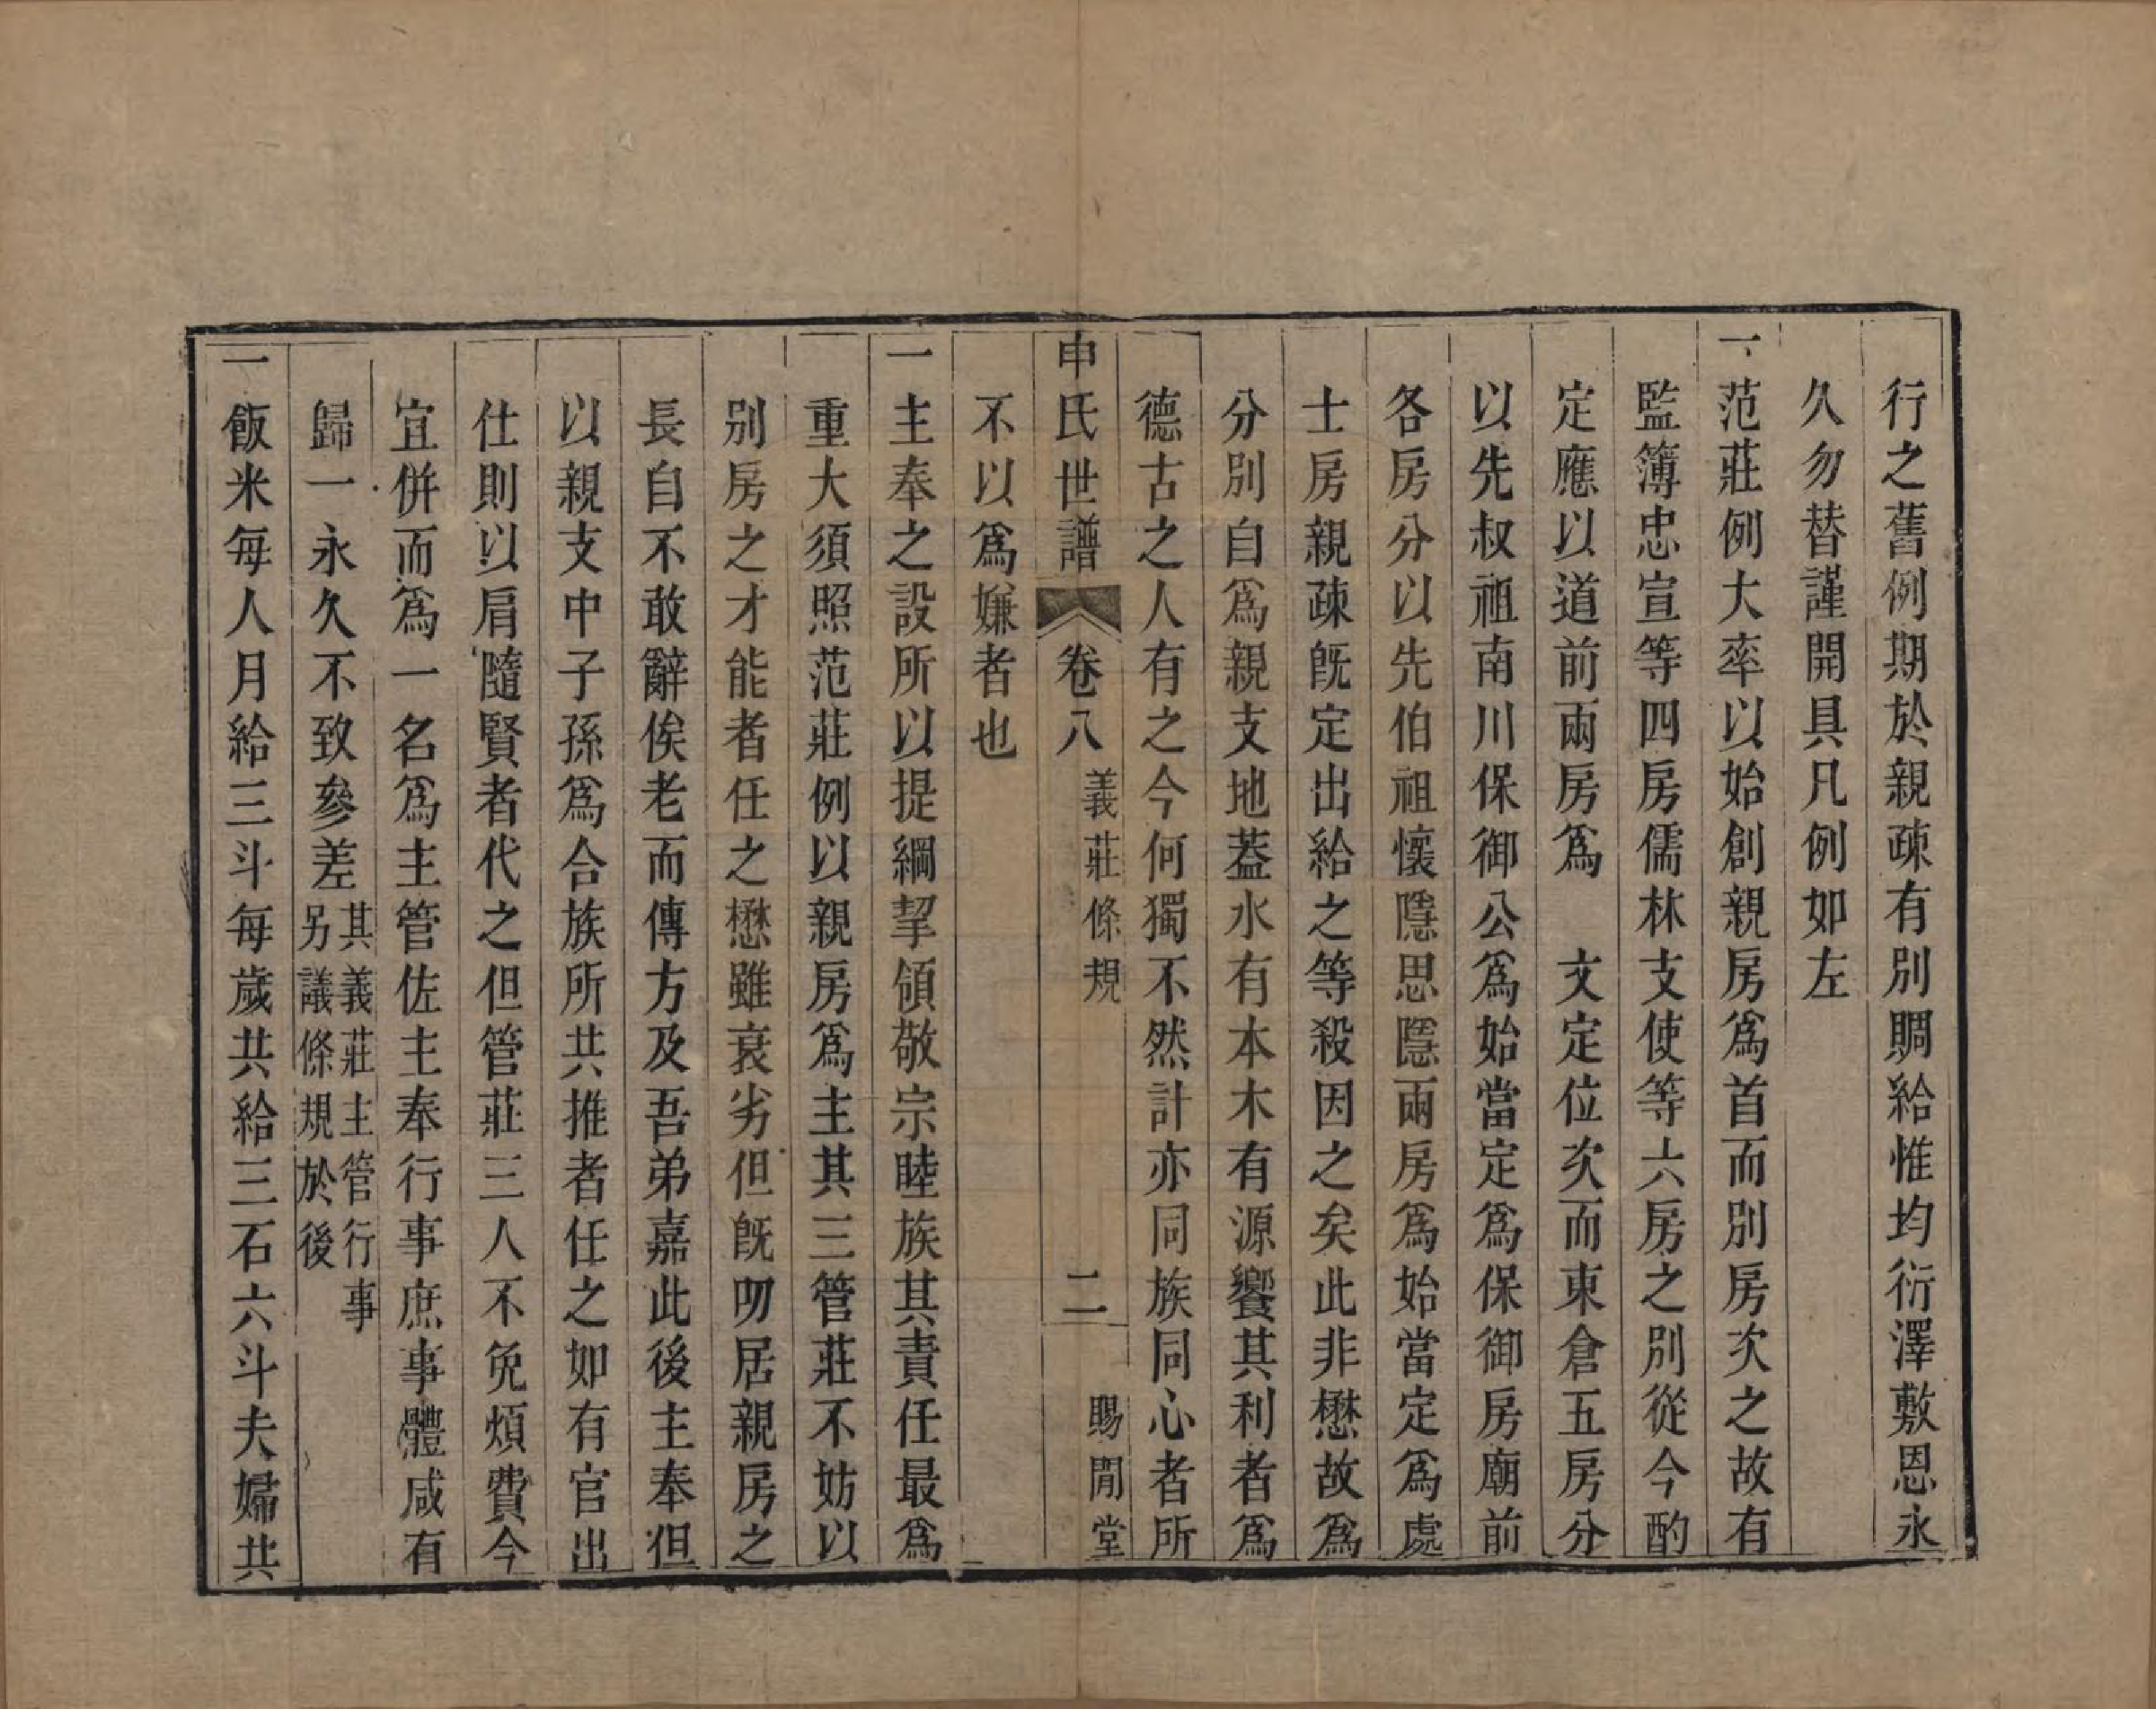 行之舊例期於親疎有別賙給惟均衍澤敷恩永
久勿替謹開具凡例如左
一范莊例大率以始創親房爲首而別房次之故有
監簿忠宣等四房儒林支使等六房之別從今酌
定應以道前兩房爲　文定位次而東倉五房分
以先叔祖南川保御公爲始當定爲保御房廟前
各房分以先伯祖懷隱思隱兩房爲始當定爲處
士房親疎旣定出給之等殺因之矣此非懋故爲
分別自爲親支地葢水有本木有源饗其利者爲
德古之人有之今何獨不然計亦同族同心者所
申氏世譜　卷八　義莊條規　二　賜閒堂
不以爲嫌者也
一主奉之設所以提綱挈領敬宗睦族其責任最爲
重大須照范莊例以親房爲主其三管莊不妨以
別房之才能者任之懋雖衰劣但旣叨居親房之
長自不敢辭俟老而傳方及吾弟嘉此後主奉但
以親支中子孫爲合族所共推者任之如有官出
仕則以肩隨賢者代之但管莊三人不免煩費今
宜併而爲一名爲主管佐主奉行事庶事體咸有
歸一永久不致參差其義莊主管行事另議條規於後
一飯米每人月給三斗每歲共給三石六斗夫婦共